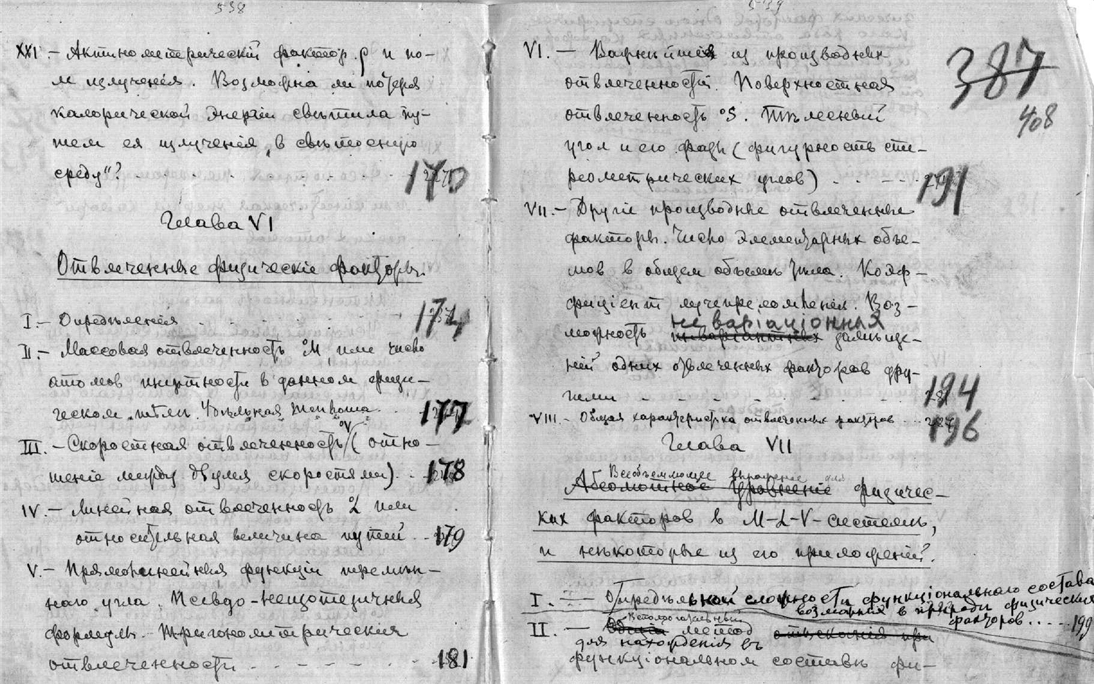 538
XXI.- Актинометрическій фактор ρ и по-
ля излученія. Возможна ли потеря
калорической энергіи свѣтила пу-
тем ея излученія „в свѣтоносную
среду“? 170
Глава VI
Отвлеченные физическіе факторы.
I.- Опредѣленія 174
II.- Массовая отвлеченность °M или число
атомов инертности в данном физи-
ческом тѣлѣ. Удѣльная 177
III.- Скоростная отвлеченность °V (отно-
шеніе между двумя скоростями) 178
IV.- Линейная отвлеченность °L или
относительная величина путей 179
V.- Прямолинейныя функціи перемѣн-
наго угла. Псевдо-неизотепичныя
формулы. Тригонометрическія
отвлеченности 181
539
VI.- Важнѣйшія из производных
отвлеченностей. Поверхностная
отвлеченность °S. Тѣлесный
угол и его фазы (фигурность сте-
реометрических углов) 191
387
408
VII.- Другіе производные отвлеченные
факторы. Число элементарных объе-
мов в общем объемѣ тѣла. Коэф-
фиціент лучепреломленія. Воз-
можность неваріаціонная замѣще-
ній одних отвлеченных факторов дру-
гими 194
VIII.- Общая характеристика отвлеченных факторов 196
Глава VII
Всеобъемлющее выраженіе для
Абсолютное уравненіе физичес-
ких факторов в M-L-V-системѣ,
и нѣкоторые из его приложеній.
I.- Опредѣльной сложности функціональнаго состава
возможных в природѣ физических
факторов 199
II.- метод
для нахожденія въ
функціональном составѣ фи-